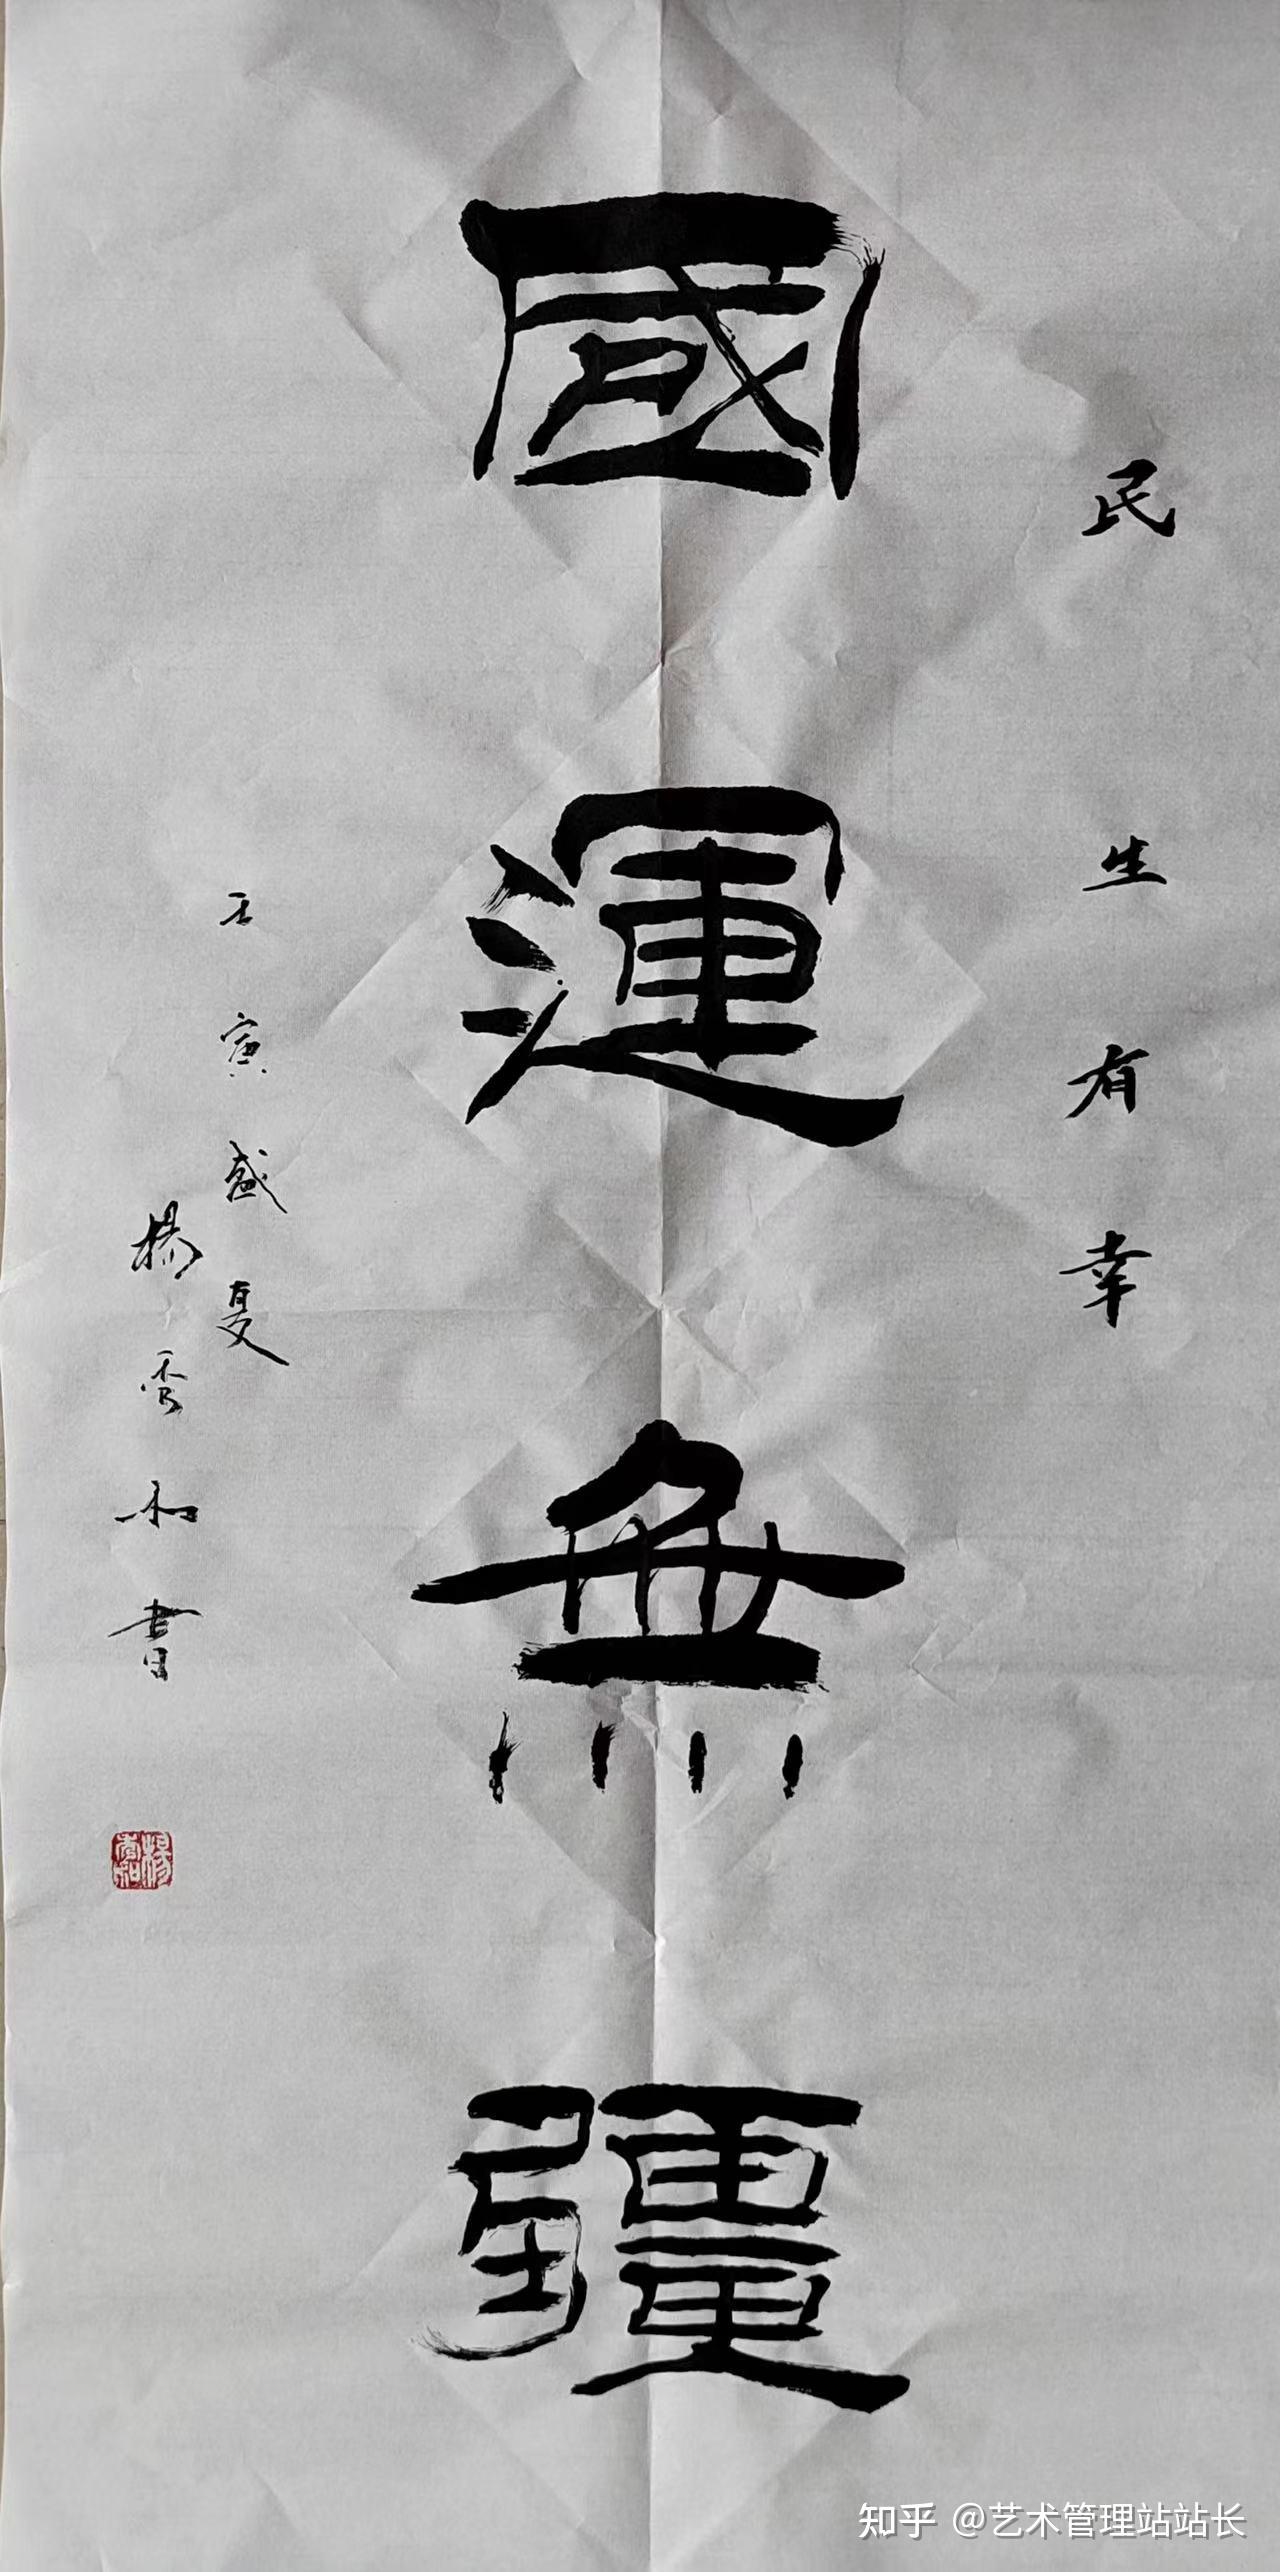 民生有幸
國運無疆
壬寅盛夏
楊雲和書
知乎 @艺术管理站站长